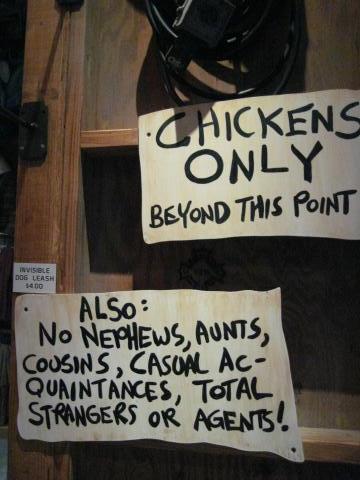 CHICKENS
ONLY
BEYOND THIS POINT
INVISIBLE
DOG LEASH
$4.00
ALSO:
NO NEPHEWS, AUNTS,
COUSINS, CASUAL AC-
QUAINTANCES, TOTAL
STRANGERS OR AGENTS!